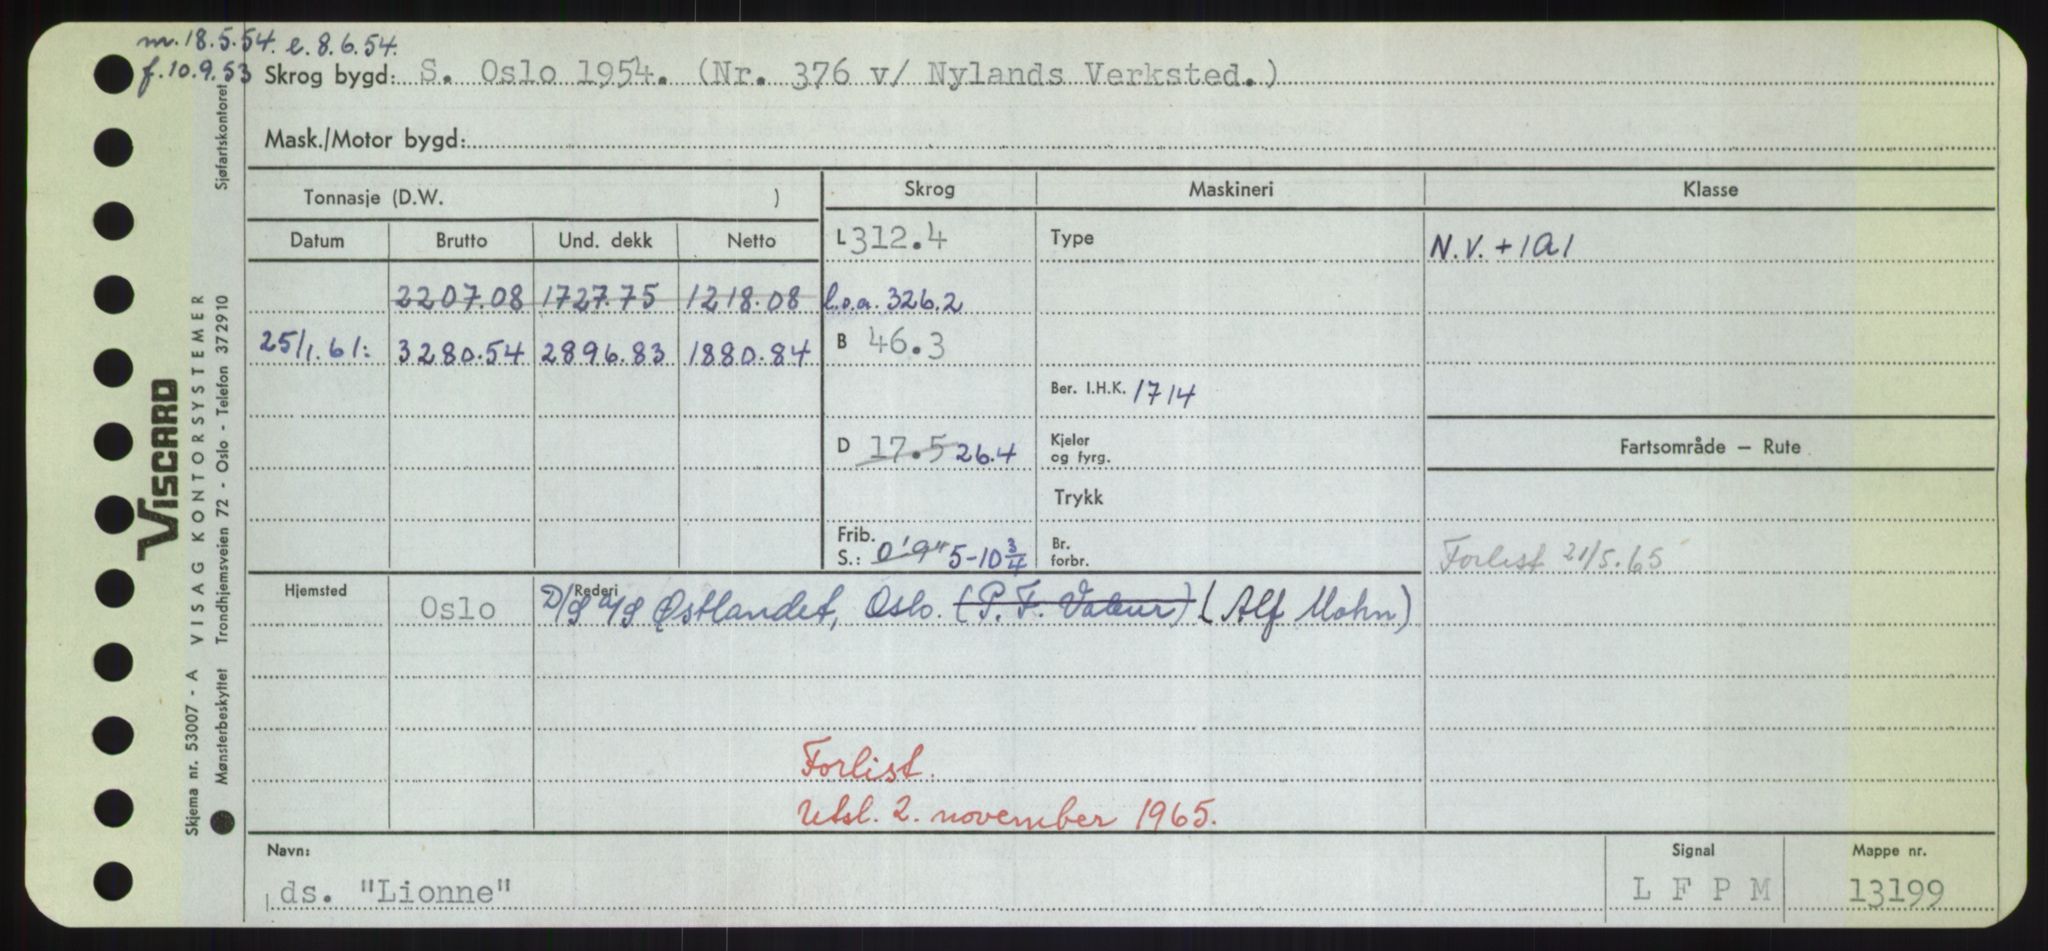 m. 18.5.54. e. 8.6.54.
f. 10.9.53 Skrog bygd: S. Oslo 1954. (Nr. 376 v/ Nylands Verksted.)
Mask./Motor bygd:
Tonnasje (D.W. ) Skrog Maskineri Klasse
Datum Brutto Und. dekk Netto L 312.4 Type N.V. + 1A1
2207.08 1727.75 1218.08 l.o.a. 326.2
25/1.61: 3280.54 2896.83 1880.84 B 46.3
Ber. I.H.K. 1714
D 17.5 26.4 Kjeler og fyrg. Fartsområde — Rute
Trykk
Frib. S.: 0'9" 5-10 3/4 Br. forbr. Forlist 21/5.65
Hjemsted Oslo Rederi D/S A/S Østlandet, Oslo. (P. F. Vateur) (Alf Mohn)
Forlist.
Utsl. 2. november 1965.
Navn: Signal Mappe nr.
ds. "Lionne" L F P M 13199
VISCARD
Skjema nr. 53007 - A VISAG KONTORSYSTEMER
Mønsterbeskyttet Trondhjemsveien 72 - Oslo - Telefon 372910 Sjøfartskontoret